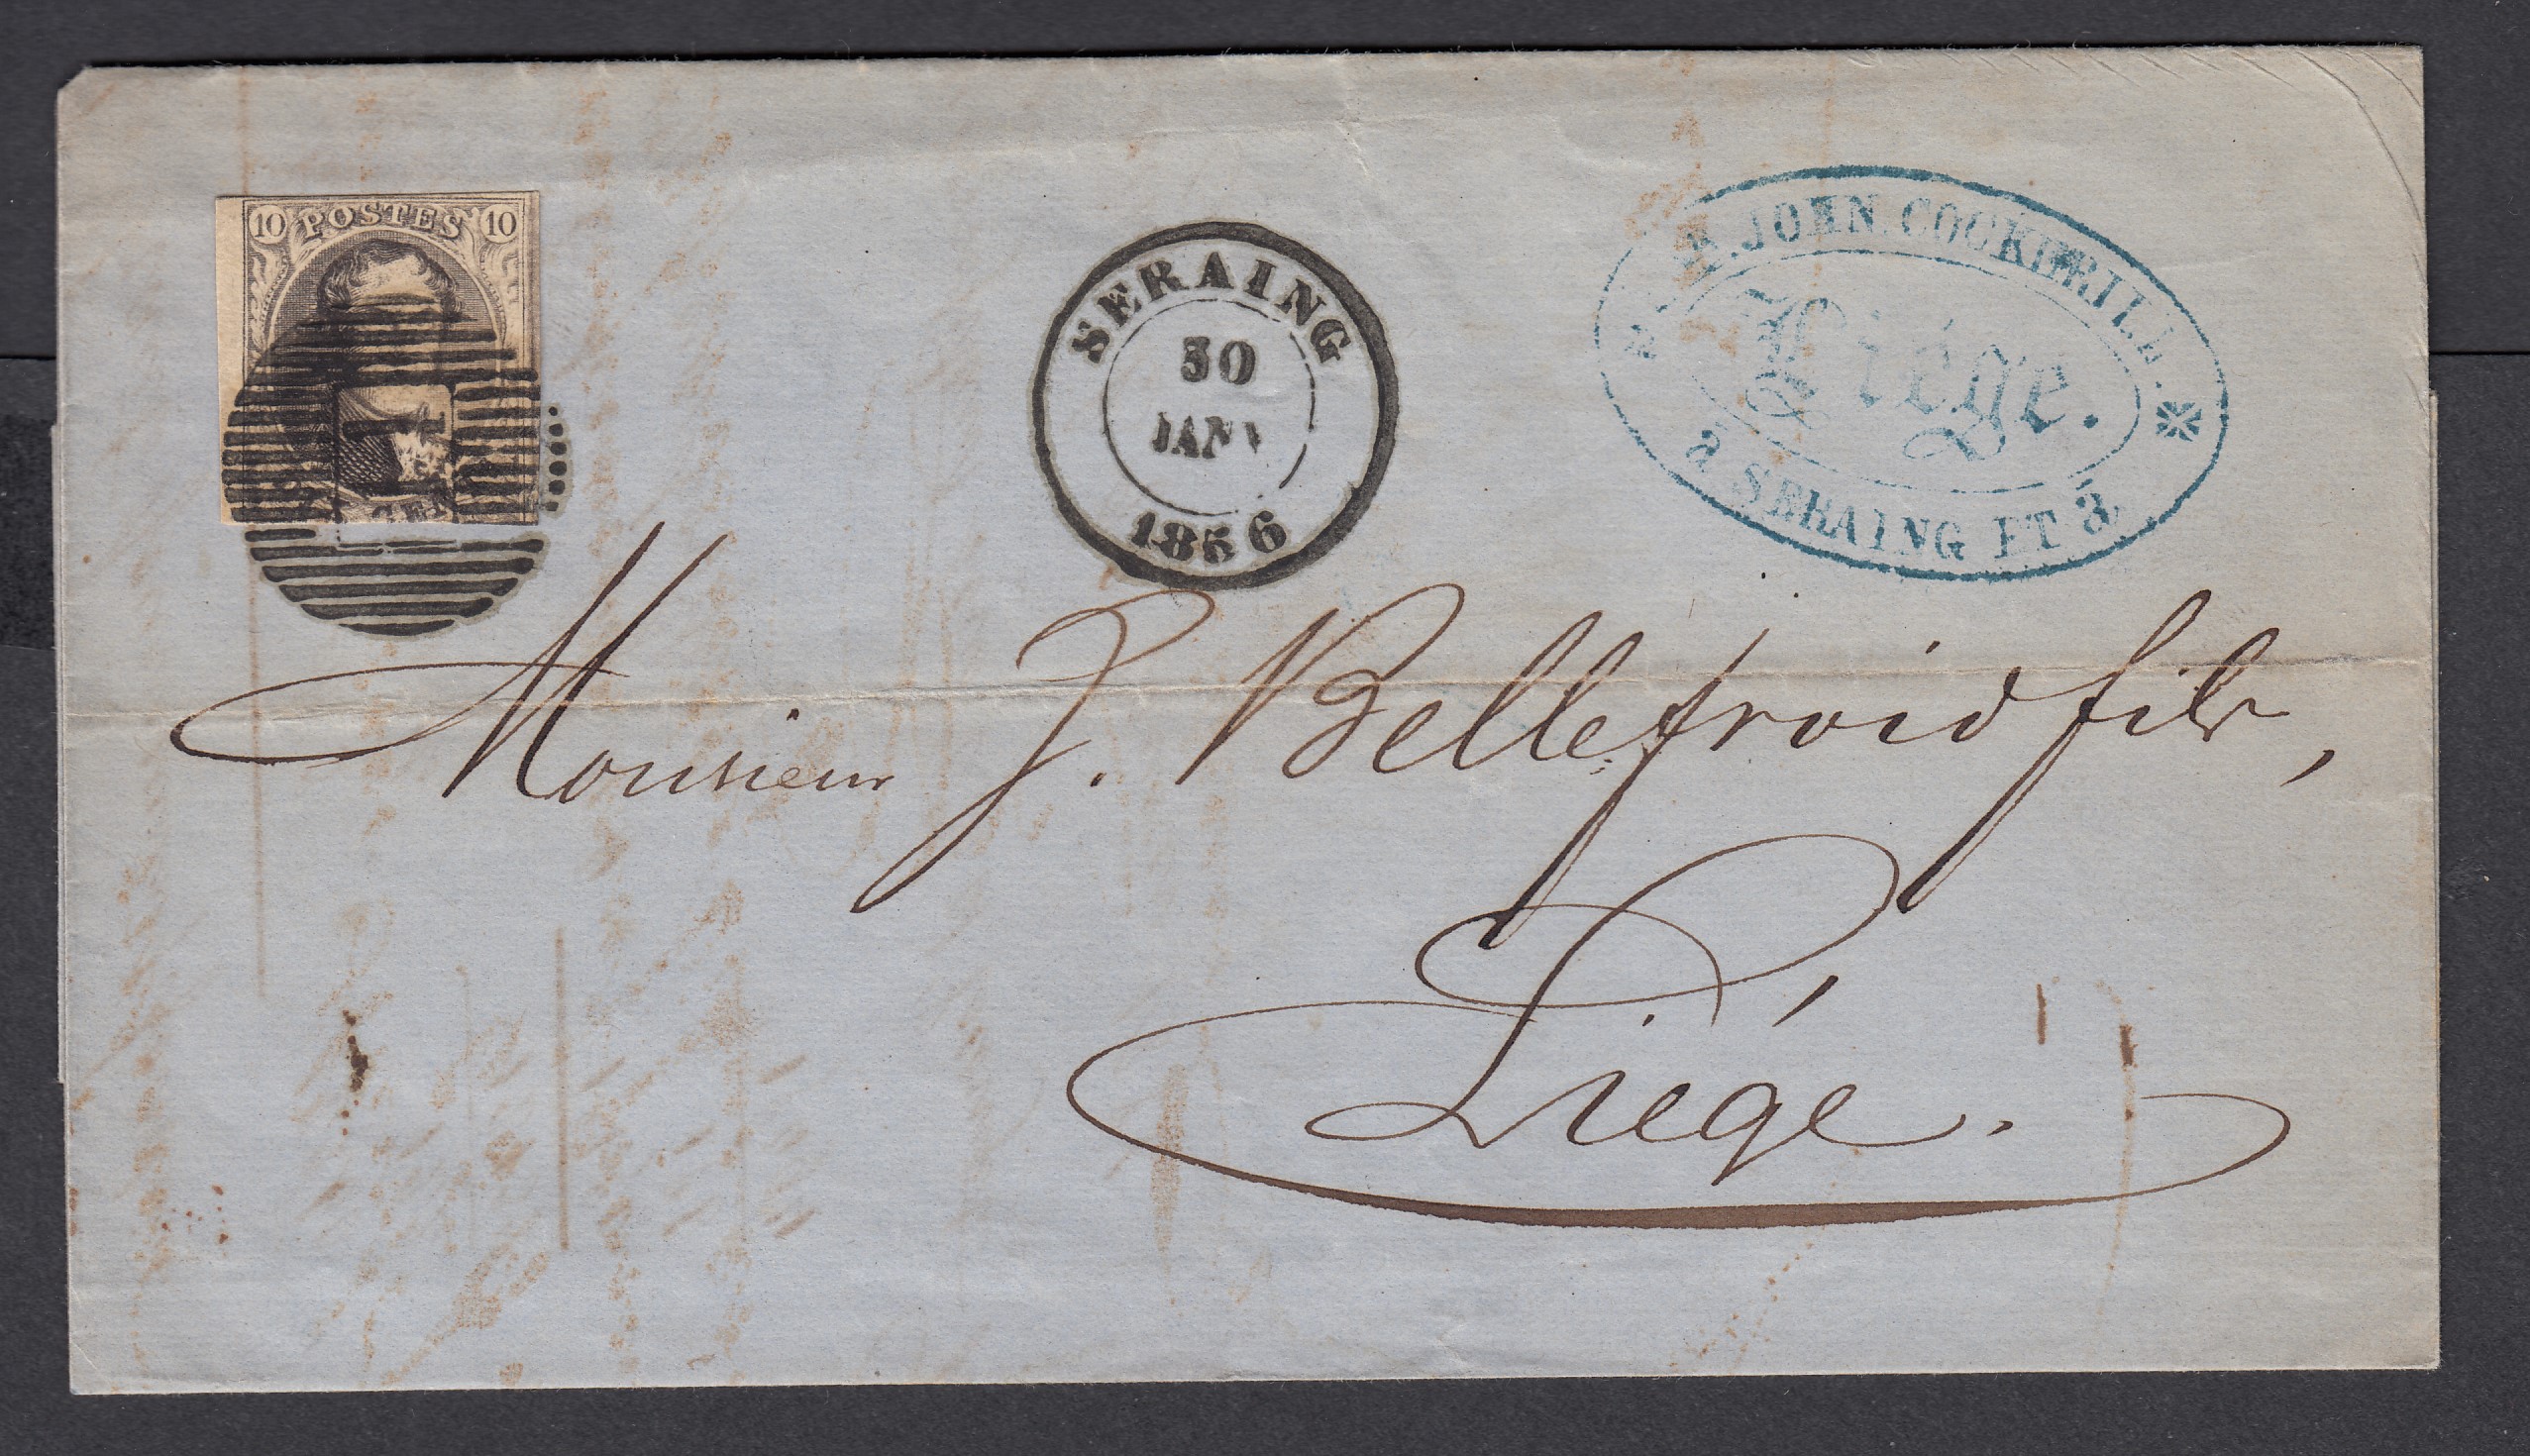 10 POSTES 10
SERAING
30
JANV
1856
JOHN COCKERILL
Liége.
à SERAING ET à
Monsieur J. Bellefroid fils,
Liége.